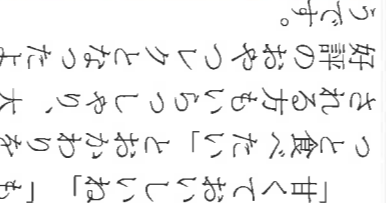 「甘くておいしいね」「も
っと食べたい」とおかわりを
される方もいらっしゃり、大
好評のおやつレクとなったよ
うです。